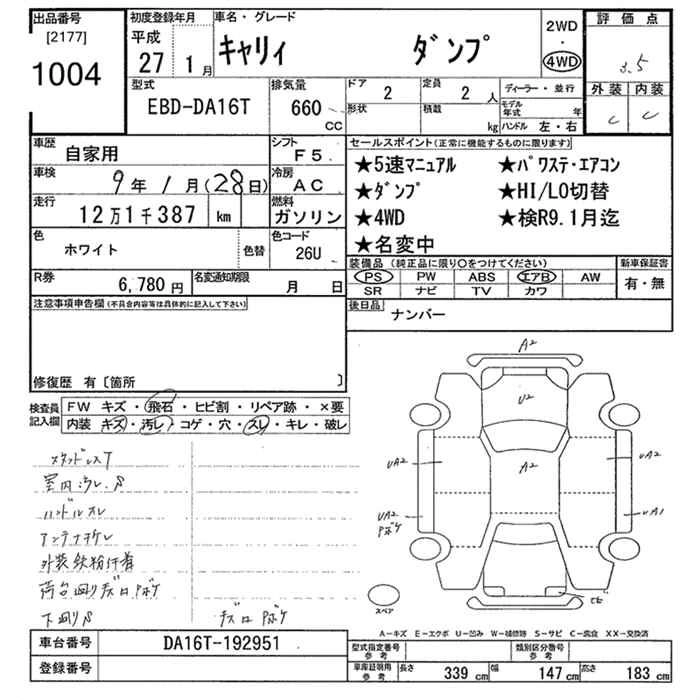 出品番号
[2177]
1004
初度登録年月
平成
27年1月
車名・グレード
キャリィ ダンプ
2WD
・
4WD
評価点
3.5
外装 内装
C C
型式
EBD-DA16T
排気量
660 CC
ドア 2
定員 2人
形状
積載 kg
ディーラー・並行
モデル年式 年
ハンドル 左・右
車歴 自家用
シフト F5
車検 9年1月(28日)
冷房 AC
走行 12万1千387 km
燃料 ガソリン
色 ホワイト 色替
色コード 26U
R券 6,780円
名変通知期限 月 日
セールスポイント(正常に機能するものに限ります)
★5速マニュアル ★パワステ・エアコン
★ダンプ ★HI/LO切替
★4WD ★検R9.1月迄
★名変中
装備品(純正品に限り〇をつけてください)
PS PW ABS エアB AW
SR ナビ TV カワ
新車保証書
有・無
後日品 ナンバー
注意事項申告欄(不具合内容等は具体的に記入して下さい)
修復歴 有〔箇所 〕
検査員記入欄
FW キズ・飛石・ヒビ割・リペア跡・×要
内装 キズ・汚レ・コゲ・穴・スレ・キレ・破レ
スタッドレスT
室内汚レ、
ハンドルスレ
アンテナオレ
外装鉄粉付着
荷台回りキズロボケ
下回り
キズロボケ
A2
U2
A2
UA2
UA2
UA2
ボケ
UA1
サビ
スペア
A―キズ E―エクボ U―凹み W―補修跡 S―サビ C―腐食 XX―交換済
車台番号 DA16T-192951
登録番号
型式指定番号 参考
類別区分番号 参考
車庫証明用 参考
長さ 339 cm 幅 147 cm 高さ 183 cm